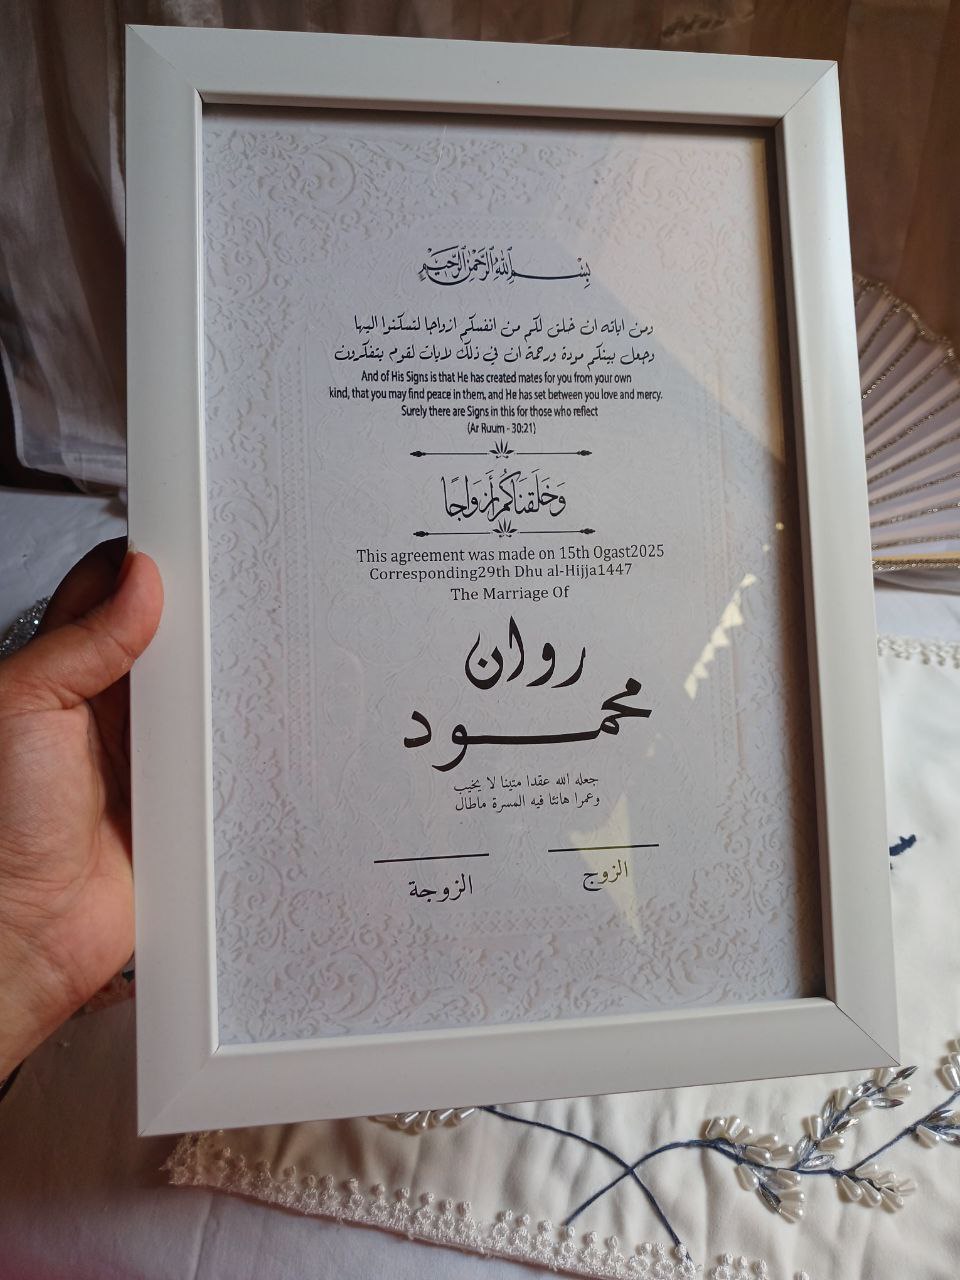 بِسْمِ اللهِ الرَّحْمٰنِ الرَّحِيْمِ
ومن اياته ان خلق لكم من انفسكم ازواجا لتسكنوا اليها
وجعل بينكم مودة ورحمة ان في ذلك لايات لقوم يتفكرون
And of His Signs is that He has created mates for you from your own
kind, that you may find peace in them, and He has set between you love and mercy.
Surely there are Signs in this for those who reflect
(Ar Ruum - 30:21)
وَخَلَقنَاكُم أَزوَاجًا
This agreement was made on 15th Ogast2025
Corresponding29th Dhu al-Hijja1447
The Marriage Of
روان
محمود
جعله الله عقدا متينا لا يخيب
وعمرا هانئا فيه المسرة ماطال
الزوج
الزوجة